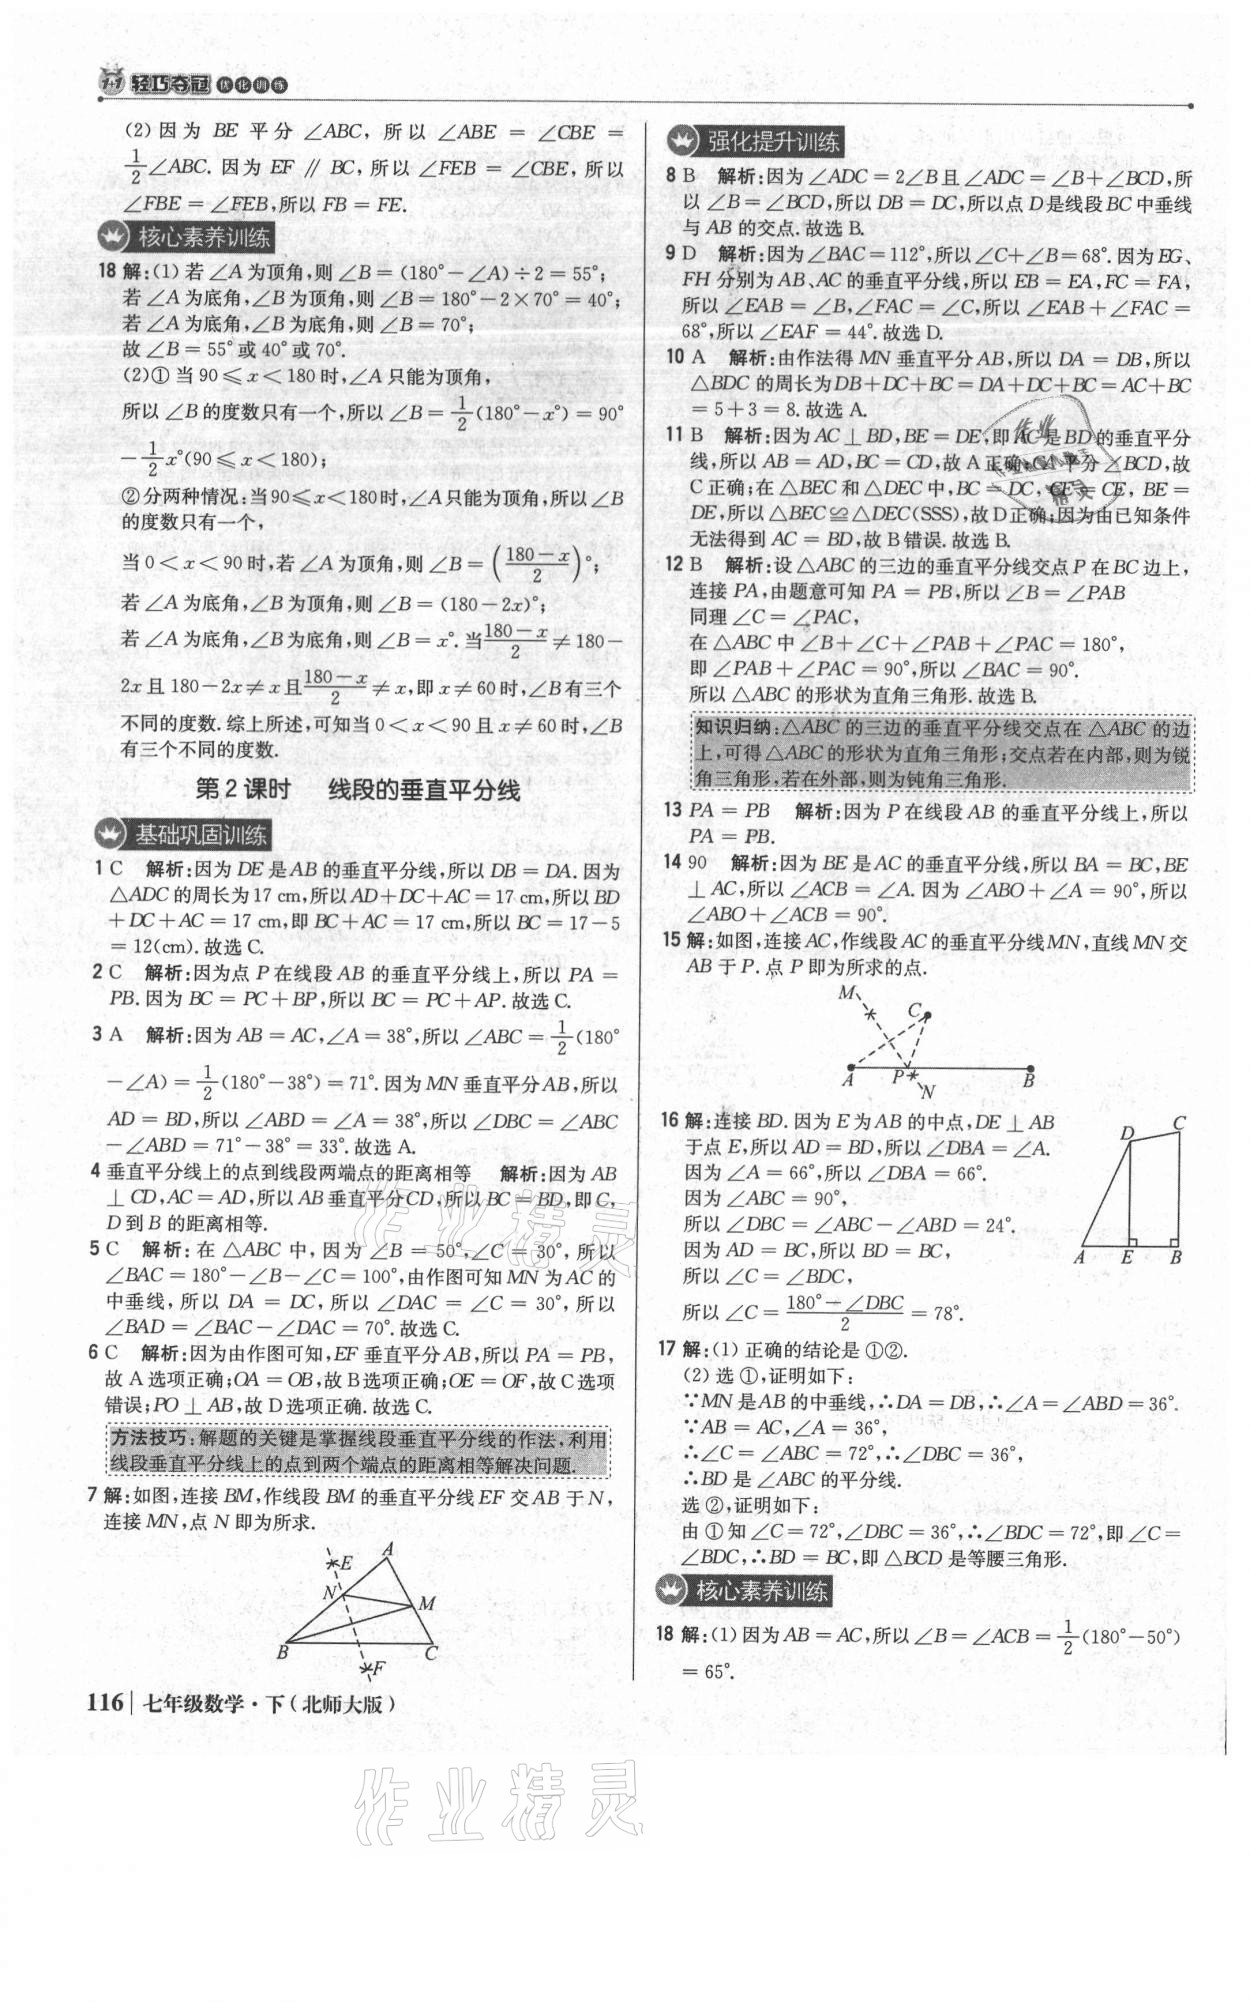 1+1 轻巧夺冠 优化训练
(2)因为 BE 平分 ∠ABC, 所以 ∠ABE = ∠CBE =
1/2∠ABC. 因为 EF ∥ BC, 所以 ∠FEB = ∠CBE, 所以
∠FBE = ∠FEB,所以 FB = FE.
核心素养训练
18 解:(1)若∠A 为顶角,则∠B=(180°-∠A)÷2=55°;
若∠A 为底角,∠B 为顶角,则∠B=180°-2×70°=40°;
若∠A 为底角,∠B 为底角,则∠B=70°;
故∠B=55°或 40°或 70°.
(2)①当 90⩽x<180 时,∠A 只能为顶角,
所以∠B 的度数只有一个,所以∠B=1/2(180°-x°)=90°
-1/2x°(90⩽x<180);
②分两种情况:当90⩽x<180时,∠A只能为顶角,所以∠B
的度数只有一个,
当 0<x<90 时,若∠A 为顶角,则∠B=((180-x)/2)°;
若∠A 为底角,∠B 为顶角,则∠B=(180-2x)°;
若∠A 为底角,∠B 为底角,则∠B=x°.当(180-x)/2≠180-
2x且180-2x≠x且(180-x)/2≠x,即x≠60时,∠B有三个
不同的度数.综上所述,可知当0<x<90且x≠60时,∠B
有三个不同的度数.
第 2 课时 线段的垂直平分线
基础巩固训练
1 C 解析:因为 DE 是 AB 的垂直平分线,所以 DB=DA.因为
△ADC 的周长为 17 cm,所以AD+DC+AC=17 cm,所以BD
+DC+AC=17 cm,即 BC+AC=17 cm,所以 BC=17-5
=12(cm).故选 C.
2 C 解析:因为点 P 在线段 AB 的垂直平分线上,所以 PA=
PB.因为 BC=PC+BP,所以 BC=PC+AP.故选 C.
3 A 解析:因为 AB=AC,∠A=38°,所以∠ABC=1/2(180°
-∠A)=1/2(180°-38°)=71°.因为 MN 垂直平分 AB,所以
AD=BD,所以∠ABD=∠A=38°,所以∠DBC=∠ABC
-∠ABD=71°-38°=33°.故选 A.
4 垂直平分线上的点到线段两端点的距离相等 解析:因为 AB
⊥CD,AC=AD,所以 AB 垂直平分CD,所以BC=BD,即C,
D 到 B 的距离相等.
5 C 解析:在△ABC 中,因为∠B=50°,∠C=30°,所以
∠BAC=180°-∠B-∠C=100°,由作图可知 MN 为 AC 的
中垂线,所以 DA=DC,所以∠DAC=∠C=30°,所以
∠BAD=∠BAC-∠DAC=70°.故选 C.
6 C 解析:因为由作图可知,EF 垂直平分 AB,所以 PA=PB,
故 A 选项正确;OA=OB,故 B 选项正确;OE=OF,故 C 选项
错误;PO⊥AB,故 D 选项正确.故选 C.
方法技巧:解题的关键是掌握线段垂直平分线的作法,利用
线段垂直平分线上的点到两个端点的距离相等解决问题.
7 解:如图,连接 BM,作线段 BM 的垂直平分线 EF 交 AB 于 N,
连接 MN,点 N 即为所求.
E
A
N
M
B
C
F
116 七年级数学·下(北师大版)
强化提升训练
8 B 解析:因为∠ADC=2∠B且∠ADC=∠B+∠BCD,所
以∠B=∠BCD,所以 DB=DC,所以点 D 是线段 BC 中垂线
与 AB 的交点.故选 B.
9 D 解析:因为∠BAC=112°,所以∠C+∠B=68°.因为 EG、
FH 分别为 AB、AC 的垂直平分线,所以 EB=EA,FC=FA,
所以∠EAB=∠B,∠FAC=∠C,所以∠EAB+∠FAC=
68°,所以∠EAF=44°.故选 D.
10 A 解析:由作法得 MN 垂直平分 AB,所以 DA=DB,所以
△BDC 的周长为DB+DC+BC=DA+DC+BC=AC+BC
=5+3=8.故选 A.
11 B 解析:因为 AC⊥BD,BE=DE,即 AC 是 BD 的垂直平分
线,所以 AB=AD,BC=CD,故 A 正确,CA 平分∠BCD,故
C 正确;在△BEC 和△DEC 中,BC=DC,CE=CE,BE=
DE,所以△BEC≌△DEC(SSS),故 D 正确;因为由已知条件
无法得到 AC=BD,故 B 错误.故选 B.
12 B 解析:设△ABC 的三边的垂直平分线交点 P 在 BC 边上,
连接 PA,由题意可知 PA=PB,所以∠B=∠PAB
同理∠C=∠PAC,
在△ABC 中∠B+∠C+∠PAB+∠PAC=180°,
即∠PAB+∠PAC=90°,所以∠BAC=90°.
所以△ABC 的形状为直角三角形.故选 B.
知识归纳:△ABC 的三边的垂直平分线交点在△ABC 的边
上,可得△ABC 的形状为直角三角形;交点若在内部,则为锐
角三角形,若在外部,则为钝角三角形.
13 PA=PB 解析:因为 P 在线段 AB 的垂直平分线上,所以
PA=PB.
14 90 解析:因为 BE 是 AC 的垂直平分线,所以 BA=BC,BE
⊥AC,所以∠ACB=∠A.因为∠ABO+∠A=90°,所以
∠ABO+∠ACB=90°.
15 解:如图,连接 AC,作线段 AC 的垂直平分线MN,直线 MN 交
AB 于 P.点 P 即为所求的点.
M
C
A
P
N
B
16 解:连接 BD.因为 E 为 AB 的中点,DE⊥AB
于点 E,所以 AD=BD,所以∠DBA=∠A.
因为∠A=66°,所以∠DBA=66°.
因为∠ABC=90°,
所以∠DBC=∠ABC-∠ABD=24°.
因为 AD=BC,所以 BD=BC,
所以∠C=∠BDC,
所以∠C=(180°-∠DBC)/2=78°.
D
C
A
E
B
17 解:(1)正确的结论是①②.
(2)选①,证明如下:
∵MN 是 AB 的中垂线,∴DA=DB,∴∠A=∠ABD=36°.
∵AB=AC,∠A=36°,
∴∠C=∠ABC=72°,∴∠DBC=36°,
∴BD 是∠ABC 的平分线.
选②,证明如下:
由①知∠C=72°,∠DBC=36°,∴∠BDC=72°,即∠C=
∠BDC,∴BD=BC,即△BCD 是等腰三角形.
核心素养训练
18 解:(1)因为 AB=AC,所以∠B=∠ACB=1/2(180°-50°)
=65°.
作业精灵
作业精灵